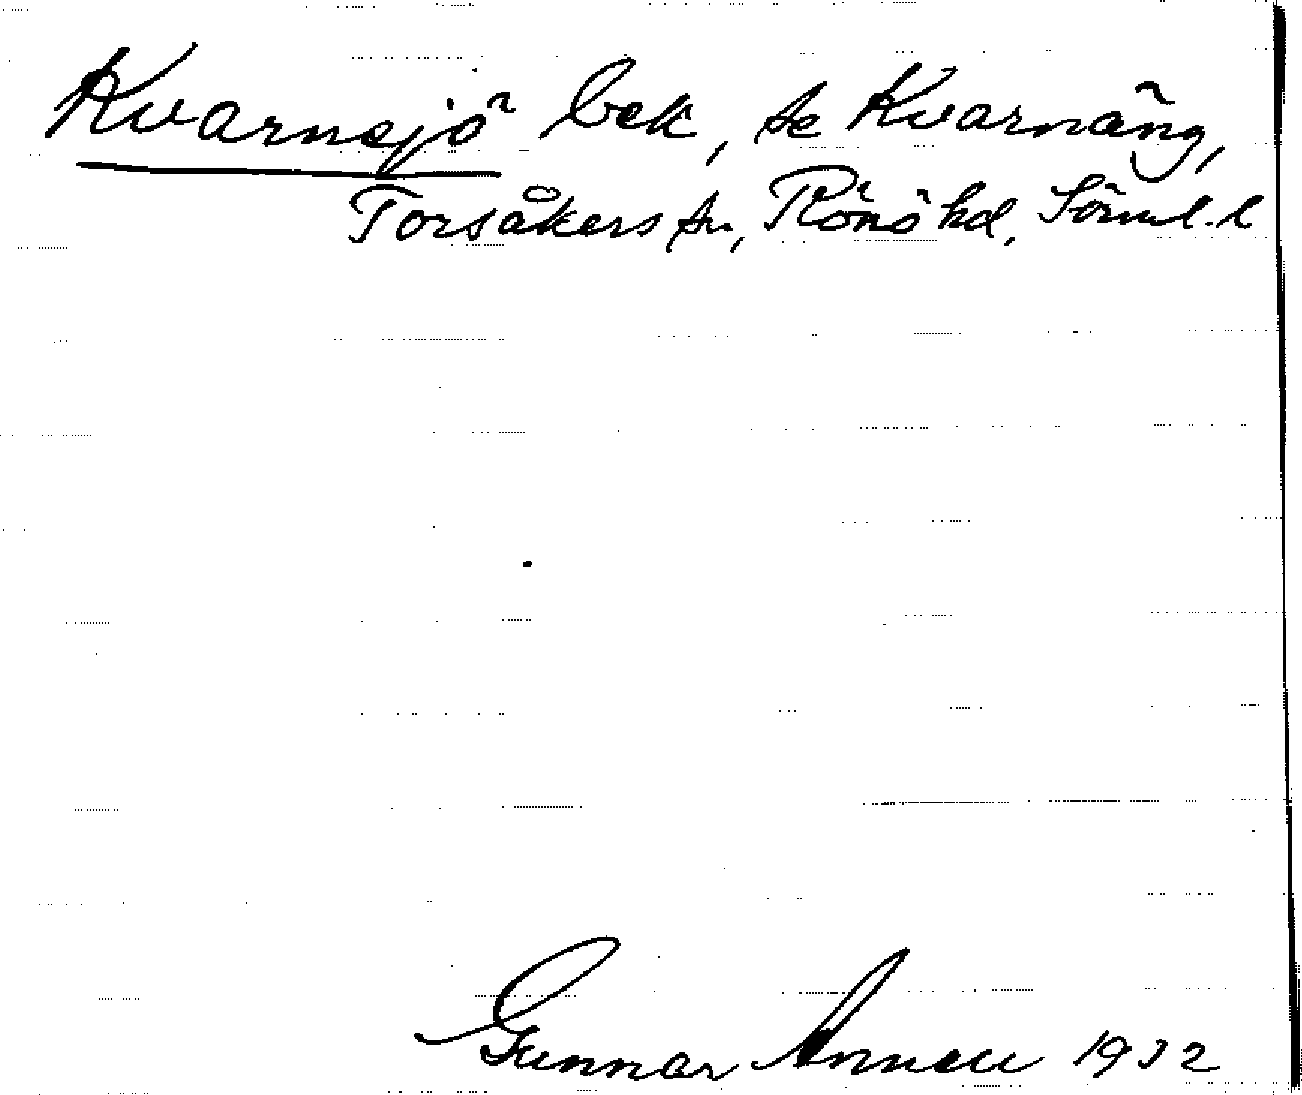 Kvarnsjö bek, se Kvarnäng,
Torsåkers sn, Rönö hd, Sörml. l
Gunnar Annell 1932